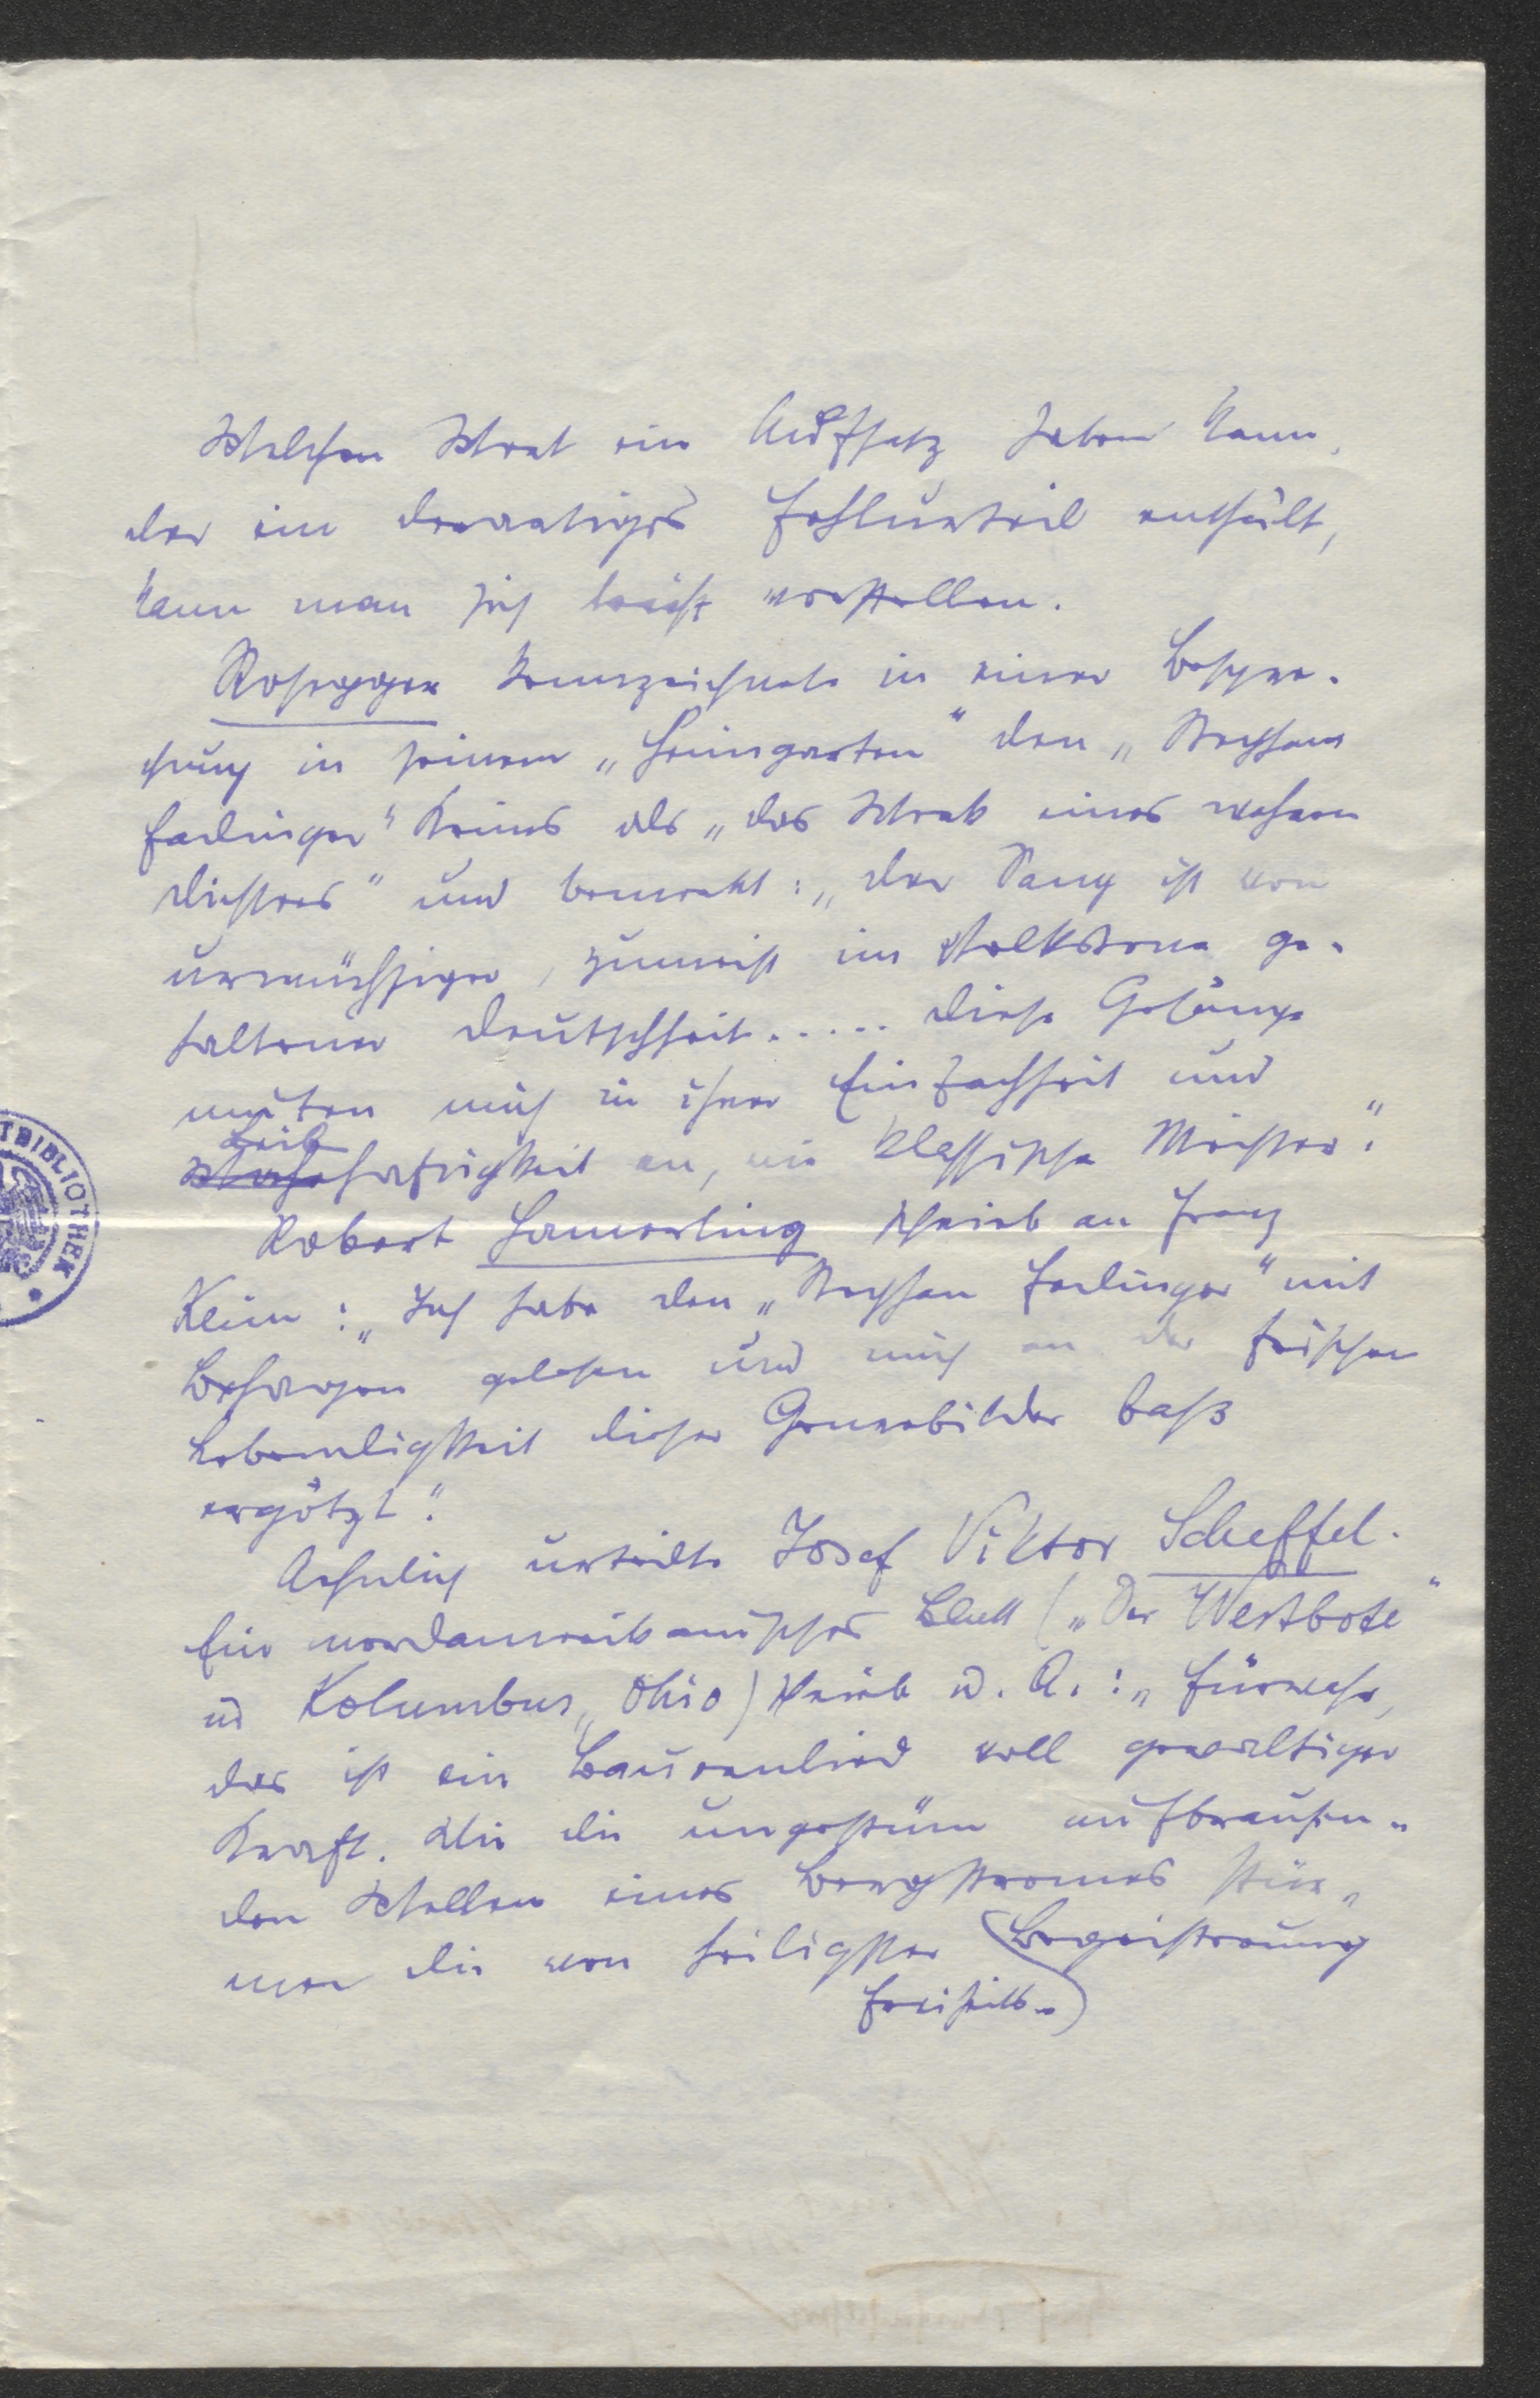 Welchen Wert ein Aufsatz haben kann,
der ein derartiges Fehlurteil enthält,
kann man sich leicht vorstellen.
Rosegger kennzeichnete in einer Bespre-
chung in seinem „Heimgarten" den „Stephan
Fadinger" Keims als „das Werk eines wahren
Dichters" und bemerkt: „der Sang ist von
urwüchsiger, zumeist im Volkstone ge-
haltener Deutschheit..... diese Gesänge
muten mich in ihrer Einfachheit und
Leib
Wahrhaftigkeit an, wie klassische Meister".
Robert Hamerling schrieb an Franz
Keim: „Ich habe den „Stephan Fadinger" mit
Behagen gelesen und mich an der frischen
Lebendigkeit dieser Genrebilder baß
ergötzt".
Aehnlich urteilte Josef Viktor Scheffel.
Ein nordamerikanisches Blatt („Der Westbote"
in Kolumbus, Ohio) schrieb u. A.: „Fürwahr,
das ist ein Bauernlied voll gewaltiger
Kraft. Wie die ungestüm aufbrausen-
den Wellen eines Bergstromes stür-
men die von heiligster Begeisterung
Freiheits-)
TBIBLIOTHEK